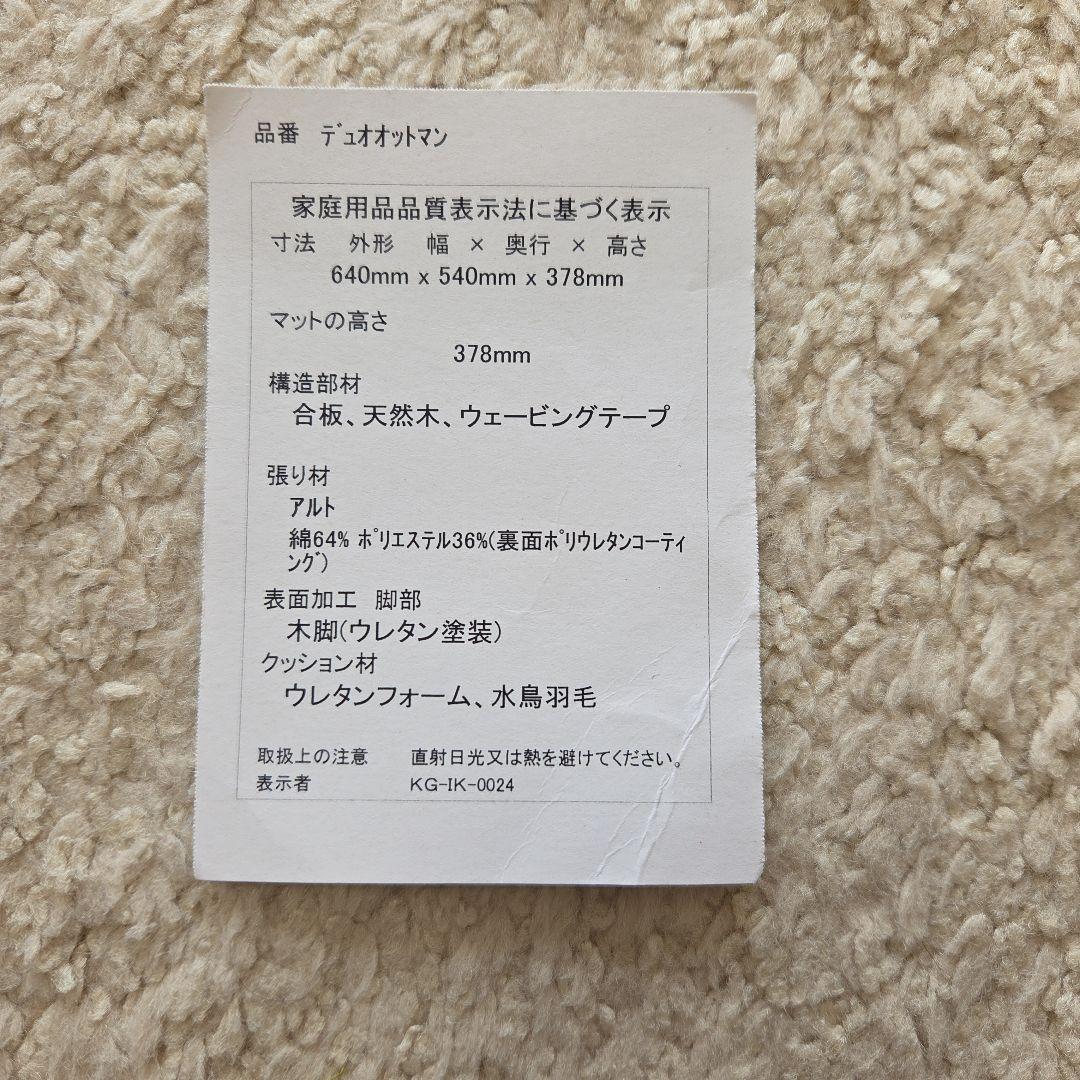 品番 ﾃﾞｭｵオットマン
家庭用品品質表示法に基づく表示
寸法 外形 幅 × 奥行 × 高さ
640mm x 540mm x 378mm
マットの高さ
378mm
構造部材
合板、天然木、ウェービングテープ
張り材
アルト
綿64% ﾎﾟﾘｴｽﾃﾙ36%(裏面ﾎﾟﾘｳﾚﾀﾝｺｰﾃｨ
ﾝｸﾞ)
表面加工 脚部
木脚(ウレタン塗装)
クッション材
ウレタンフォーム、水鳥羽毛
取扱上の注意 直射日光又は熱を避けてください。
表示者 KG-IK-0024